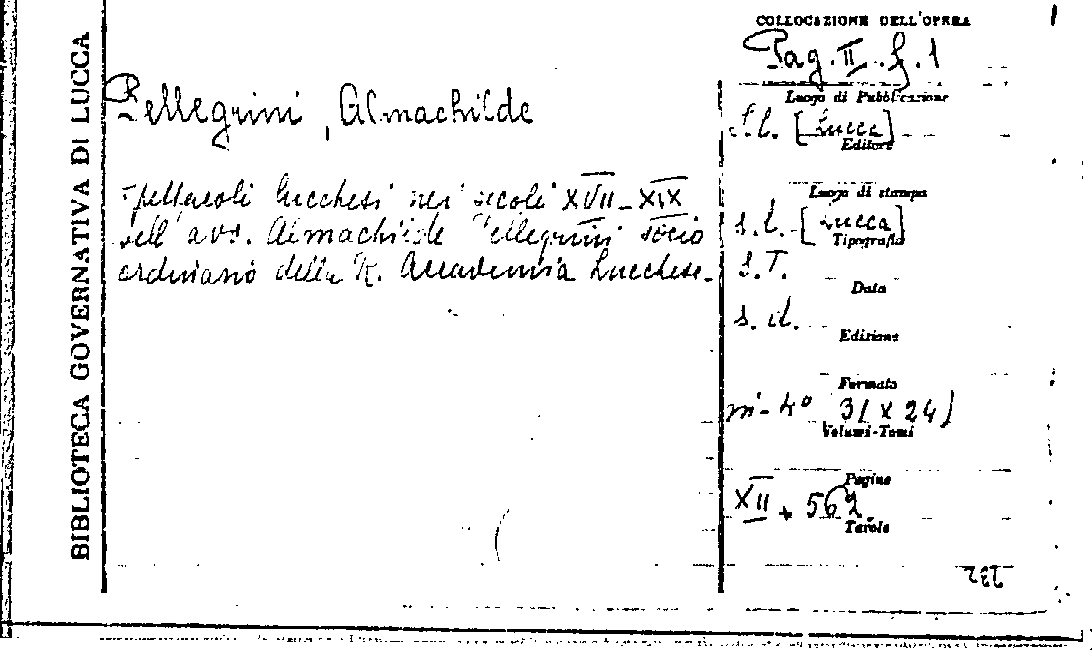 BIBLIOTECA GOVERNATIVA DI LUCCA
Pellegrini, Almachilde
Spettacoli lucchesi nei secoli XVII-XIX
dell'avv. Almachilde Pellegrini socio
ordinario della R. Accademia Lucchese.
COLLOCAZIONE DELL'OPERA
Pag. II. f. 1
Luogo di Pubblicazione
S.l. [Lucca]
Editore
Luogo di stampa
s.l. [Lucca]
Tipografia
s.T.
Data
s.d.
Edizione
Formato
in-4° 31 x 24)
Volumi-Tomi
Pagine
XII + 562
Tavole